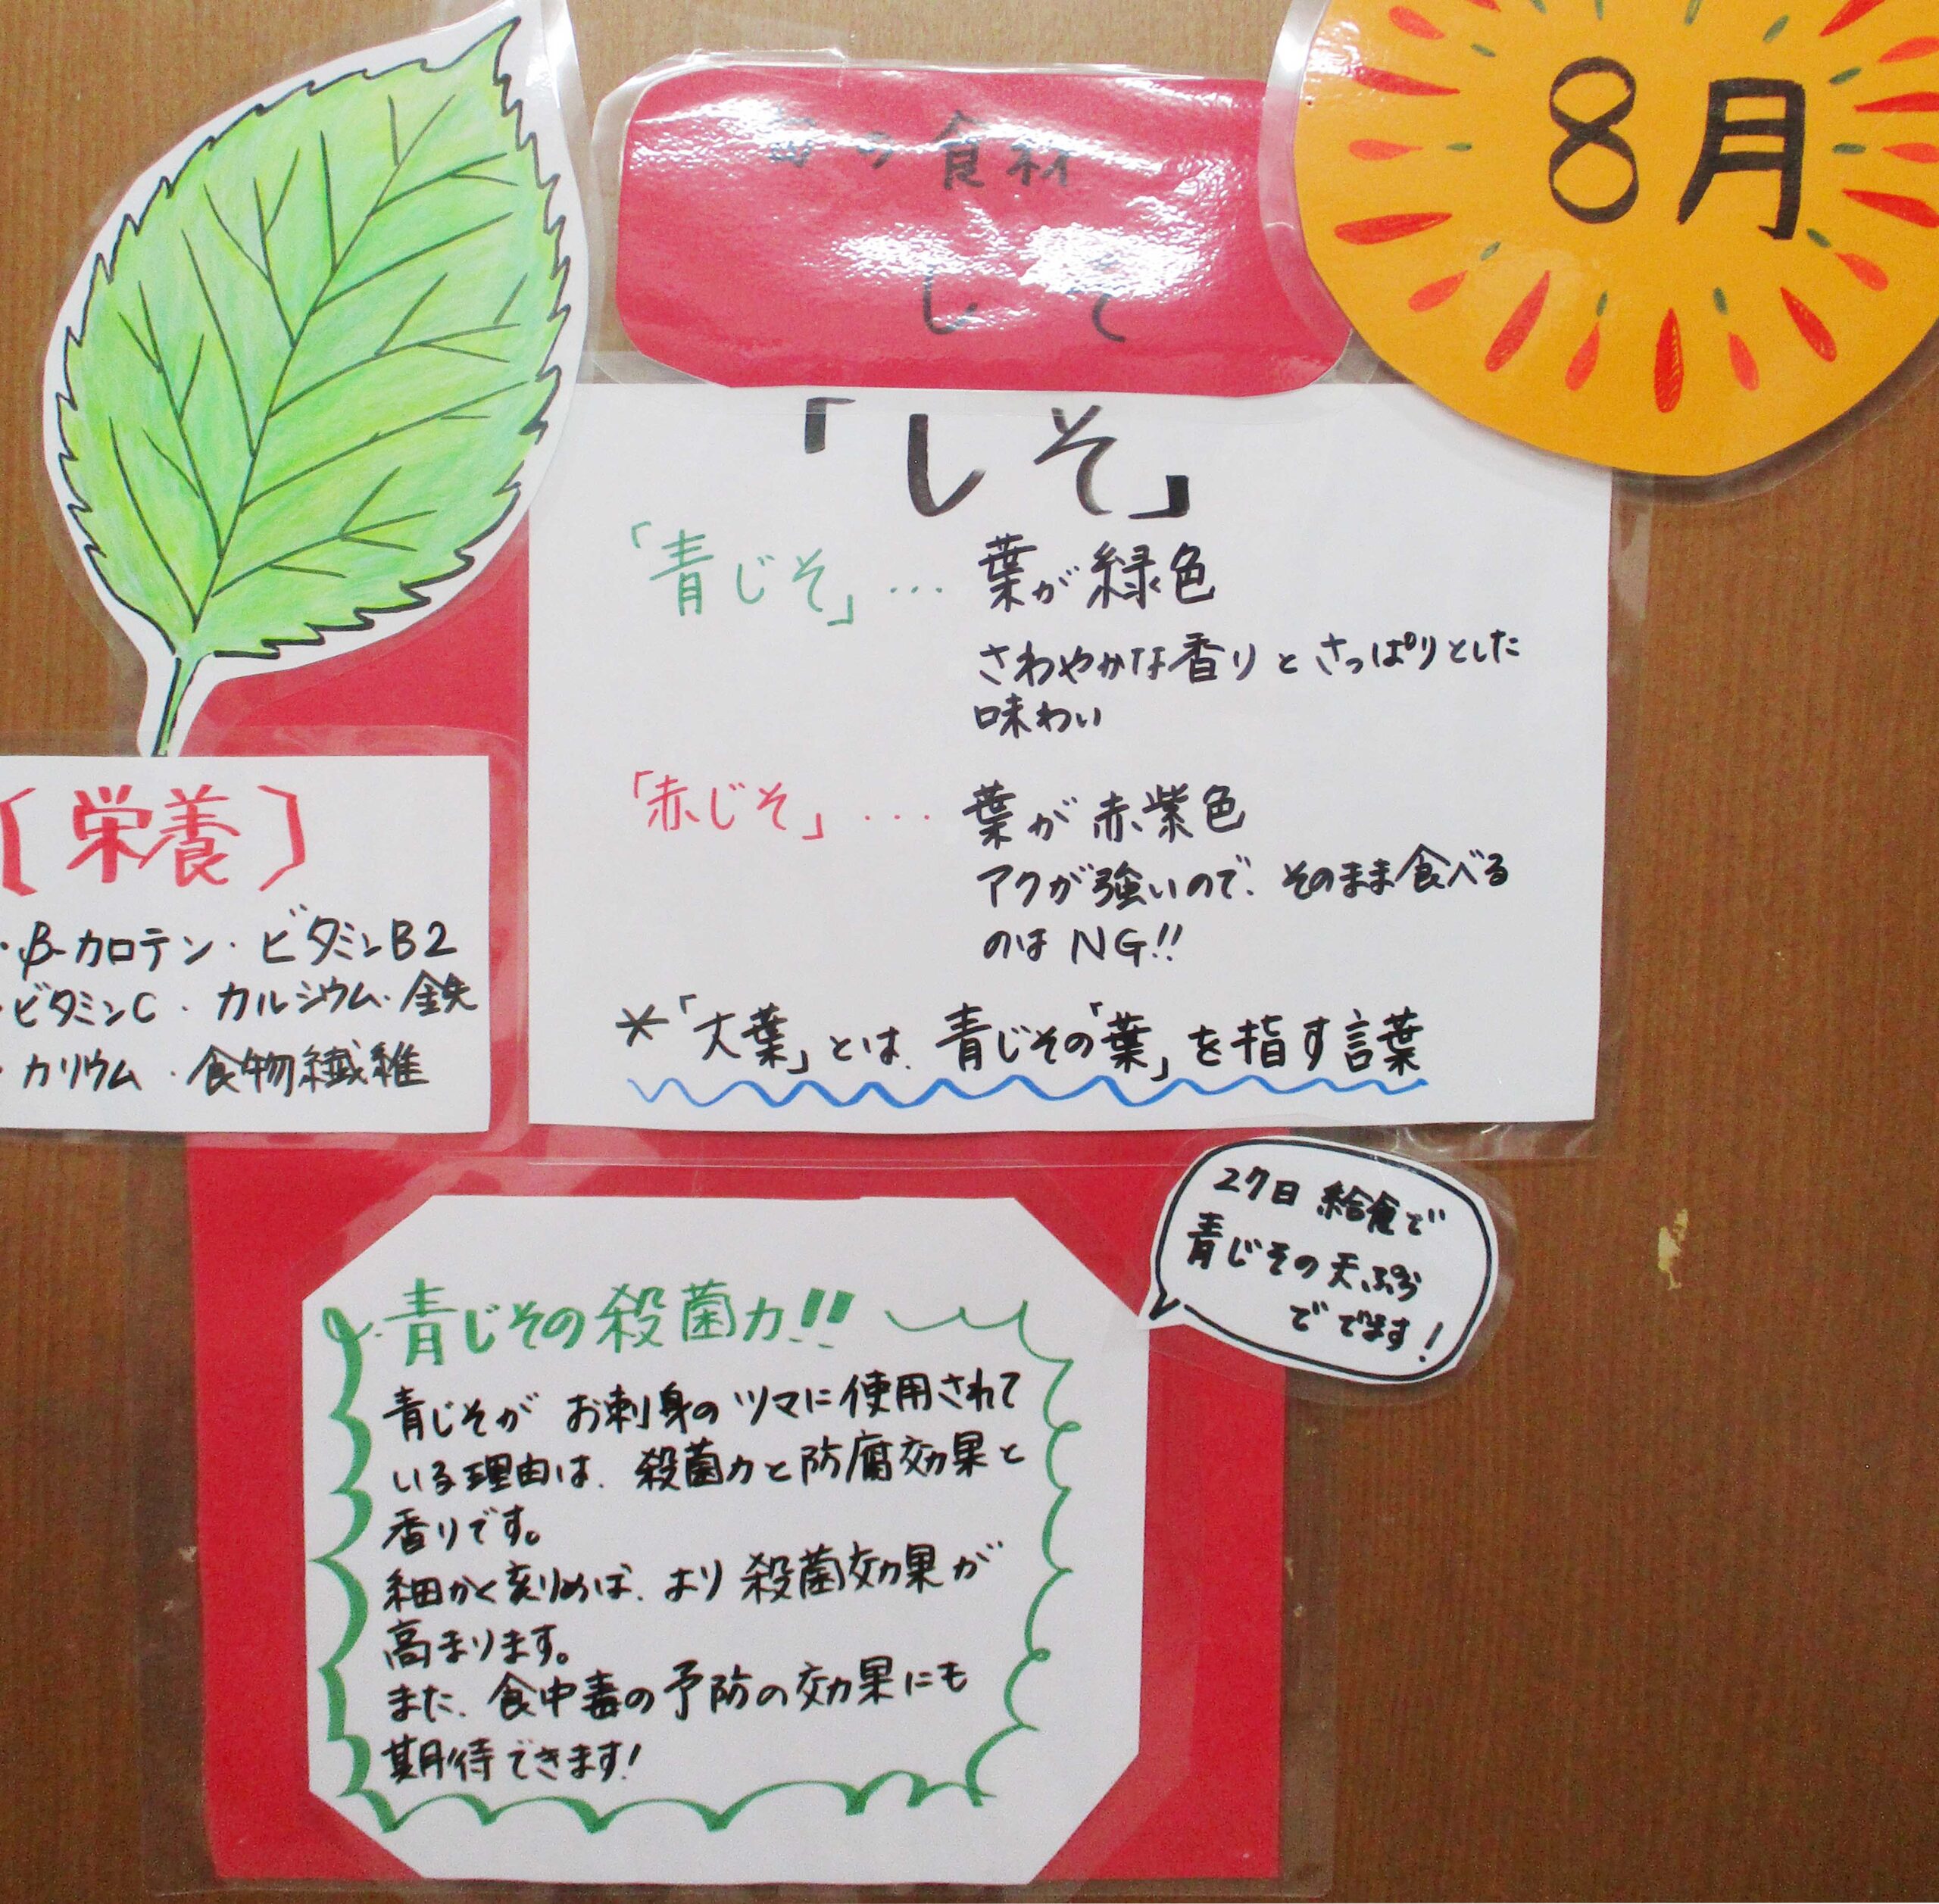 8月
の食材
しそ
「しそ」
「青じそ」… 葉が緑色
さわやかな香りとさっぱりとした
味わい
「赤じそ」… 葉が赤紫色
アクが強いので、そのまま食べる
のはNG!!
*「大葉」とは、青じその「葉」を指す言葉
〔栄養〕
・β-カロテン・ビタミンB2
・ビタミンC・カルシウム・鉄
・カリウム・食物繊維
27日 給食で
青じその天ぷら
ででます!
青じその殺菌力!!
青じそが お刺身のツマに使用されて
いる理由は、殺菌力と防腐効果と
香りです。
細かく刻めば、より殺菌効果が
高まります。
また、食中毒の予防の効果にも
期待できます!